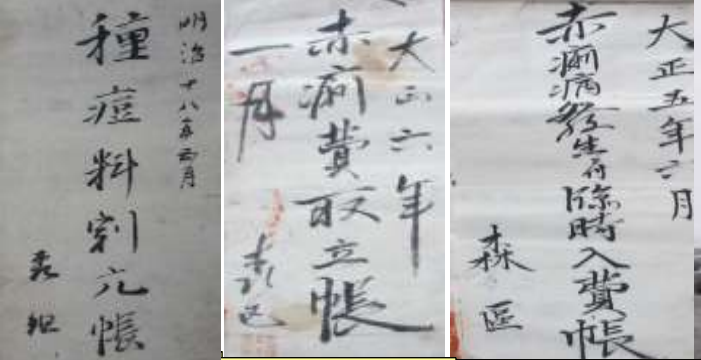 明治十八年
種痘料割元帳
森組
大正六年
赤痢費取立帳
一月
森区
大正五年六月
赤痢病發生ニ付臨時入費帳
森區